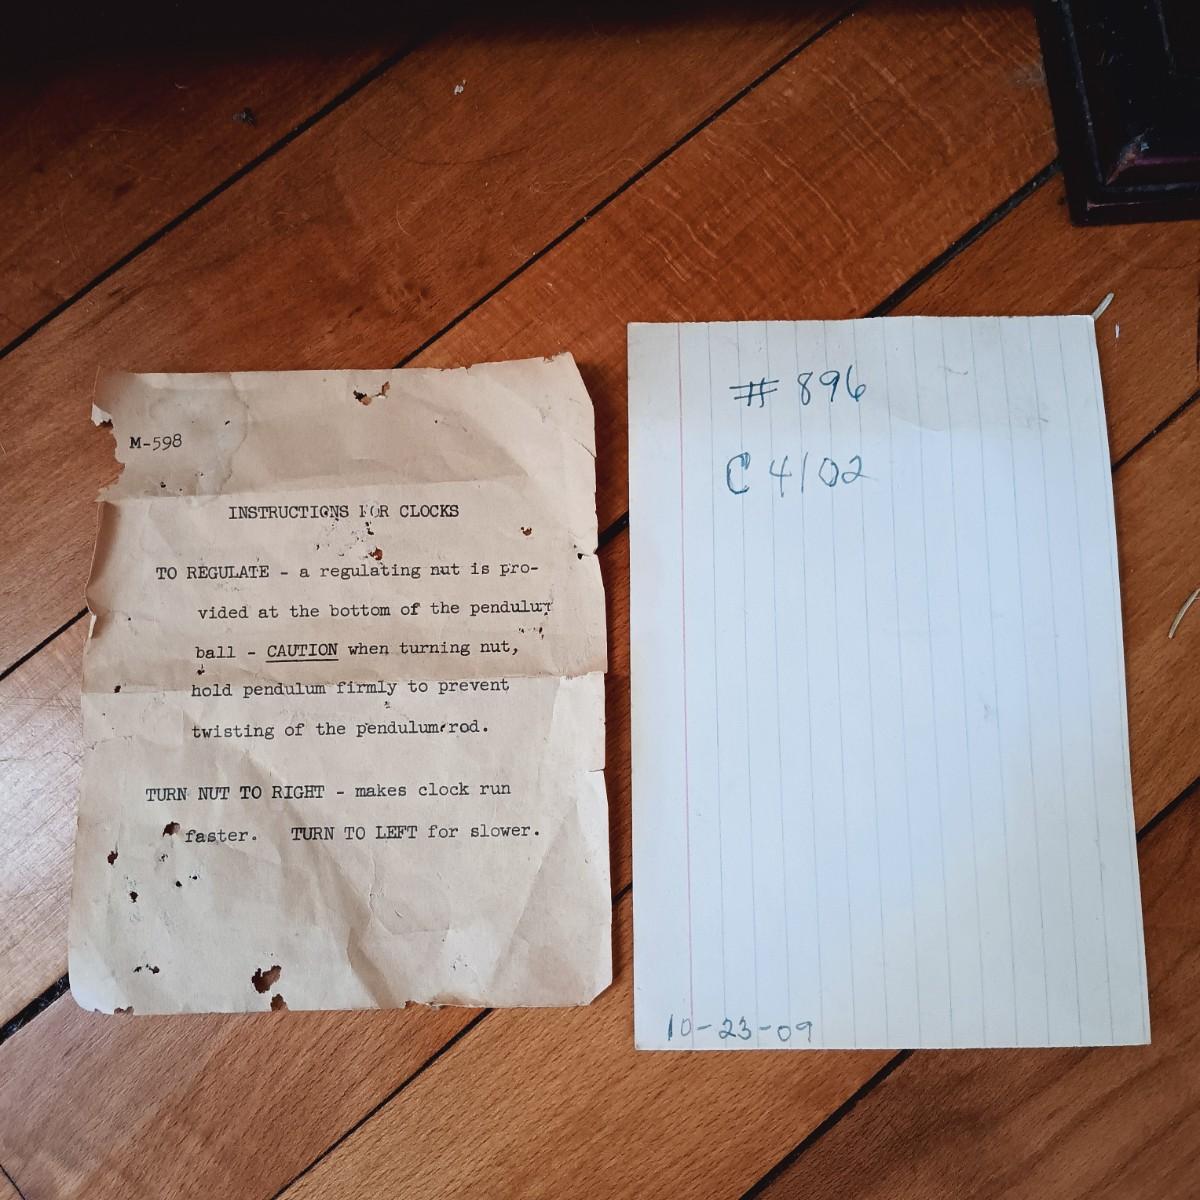 M-598
INSTRUCTIONS FOR CLOCKS
TO REGULATE - a regulating nut is pro-
vided at the bottom of the pendulum
ball - CAUTION when turning nut,
hold pendulum firmly to prevent
twisting of the pendulum rod.
TURN NUT TO RIGHT - makes clock run
faster. TURN TO LEFT for slower.
# 896
C 4/02
10-23-09